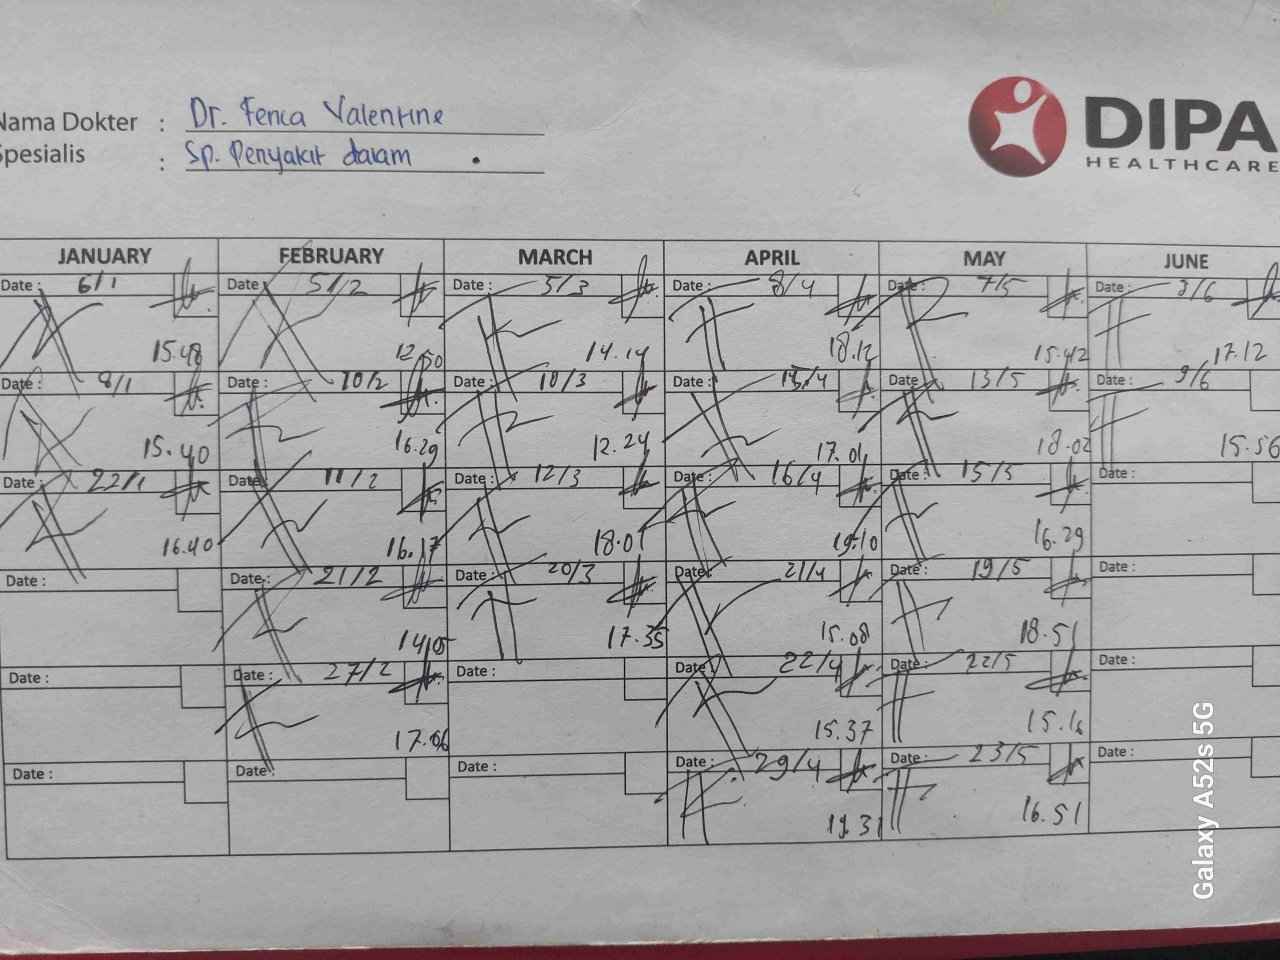 Nama Dokter : Dr. Fenca Valentine
Spesialis : Sp. Penyakit dalam
DIPA
HEALTHCARE
JANUARY FEBRUARY MARCH APRIL MAY JUNE
Date : 6/1 Date : 5/2 Date : 5/3 Date : 8/4 Date : 7/5 Date : 3/6
15.48 12.50 14.14 18.12 15.42 17.12
Date : 8/1 Date : 10/2 Date : 10/3 Date : 15/4 Date : 13/5 Date : 9/6
15.40 16.29 12.24 17.01 18.02 15.56
Date : 22/1 Date : 11/2 Date : 12/3 Date : 16/4 Date : 15/5 Date :
16.40 16.17 18.01 19.10 16.29
Date : Date : 21/2 Date : 20/3 Date : 21/4 Date : 19/5 Date :
14.05 17.35 15.08 18.51
Date : Date : 27/2 Date : Date : 22/4 Date : 22/5 Date :
17.06 15.37 15.16
Date : Date : Date : Date : 29/4 Date : 23/5 Date :
19.31 16.51
Galaxy A52s 5G